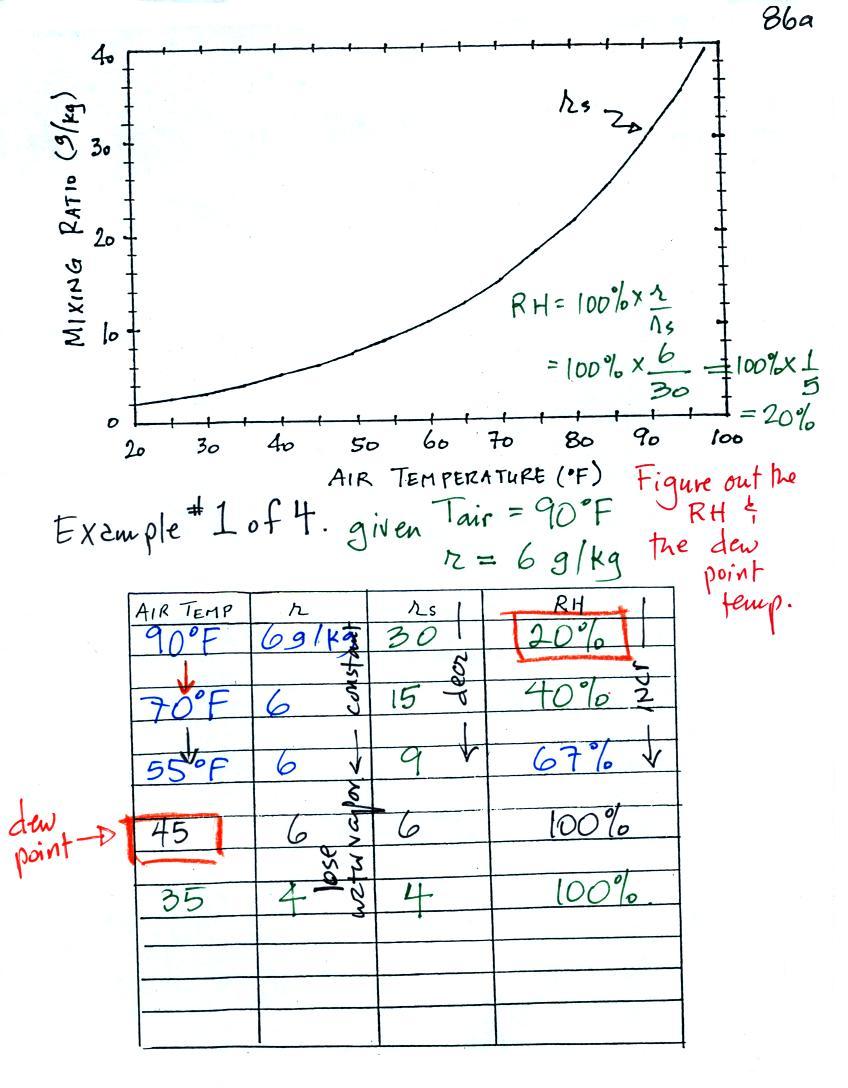 86a
40
30
20
10
0
MIXING RATIO (g/kg)
rs
RH = 100% x r/rs
= 100% x 6/30 = 100% x 1/5
= 20%
20 30 40 50 60 70 80 90 100
AIR TEMPERATURE (°F)
Figure out the
RH &
the dew
point
temp.
Example #1 of 4. given Tair = 90°F
r = 6 g/kg
AIR TEMP r rs RH
90°F 6g/kg 30 20%
70°F 6 15 40%
55°F 6 9 67%
45 6 6 100%
35 4 4 100%
constant
decr
incr
dew
point
lose
water vapor